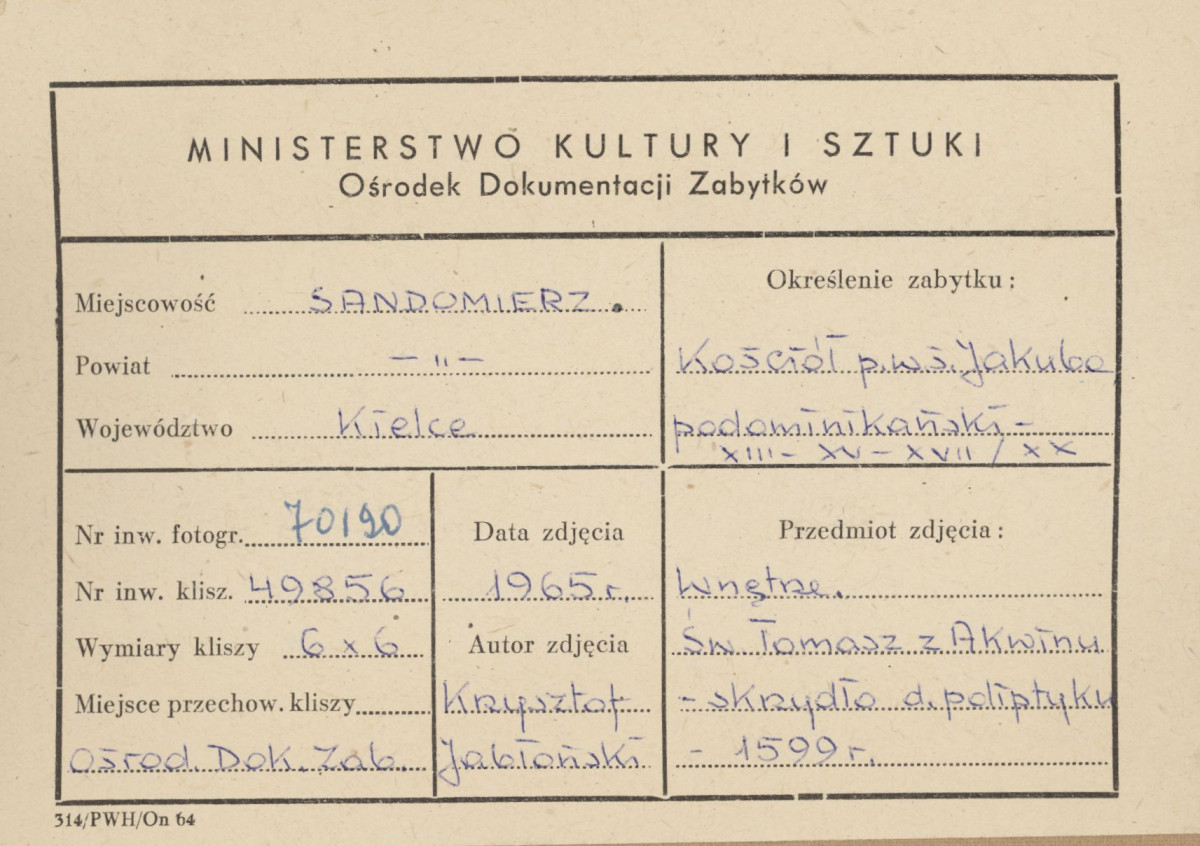 MINISTERSTWO KULTURY I SZTUKI
Ośrodek Dokumentacji Zabytków
Miejscowość SANDOMIERZ.
Powiat — " —
Województwo Kielce
Określenie zabytku:
Kościół p.wś. Jakuba
podominikański -
XIII - XV - XVII / XX
Nr inw. fotogr. 70190
Nr inw. klisz. 49856
Wymiary kliszy 6 x 6
Miejsce przechow. kliszy
Ośrod. Dok. Zab.
Data zdjęcia
1965 r.
Autor zdjęcia
Krzysztof
Jabłoński
Przedmiot zdjęcia:
Wnętrze.
Św. Tomasz z Akwinu
- skrzydło d. poliptyku
- 1599 r.
314/PWH/On 64